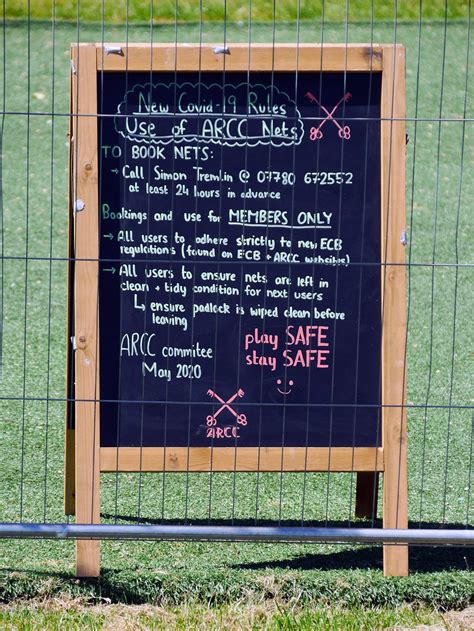 New Covid-19 Rules
Use of ARCC Nets
TO BOOK NETS:
→ Call Simon Tremlin @ 07780 672552
at least 24 hours in advance
Bookings and use for MEMBERS ONLY
→ All users to adhere strictly to new ECB
regulations (found on ECB + ARCC websites)
→ All users to ensure nets are left in
clean + tidy condition for next users
↳ ensure padlock is wiped clean before
leaving
ARCC committee
May 2020
play SAFE
stay SAFE
ARCC